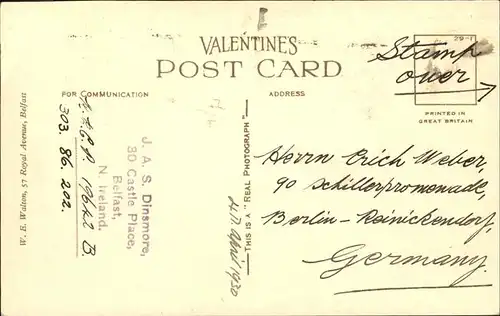 VALENTINE'S
POST CARD
FOR COMMUNICATION
ADDRESS
Stamp
over
PRINTED IN
GREAT BRITAIN
W. E. Walton, 57 Royal Avenue, Belfast
19642 B.
303. 86. 202.
J. A. S. Dinsmore,
30 Castle Place,
Belfast,
N. Ireland.
April 1930
THIS IS A "REAL PHOTOGRAPH"
Herrn Erich Weber,
90 Schillerpromenade,
Berlin-Reinickendorf,
Germany.